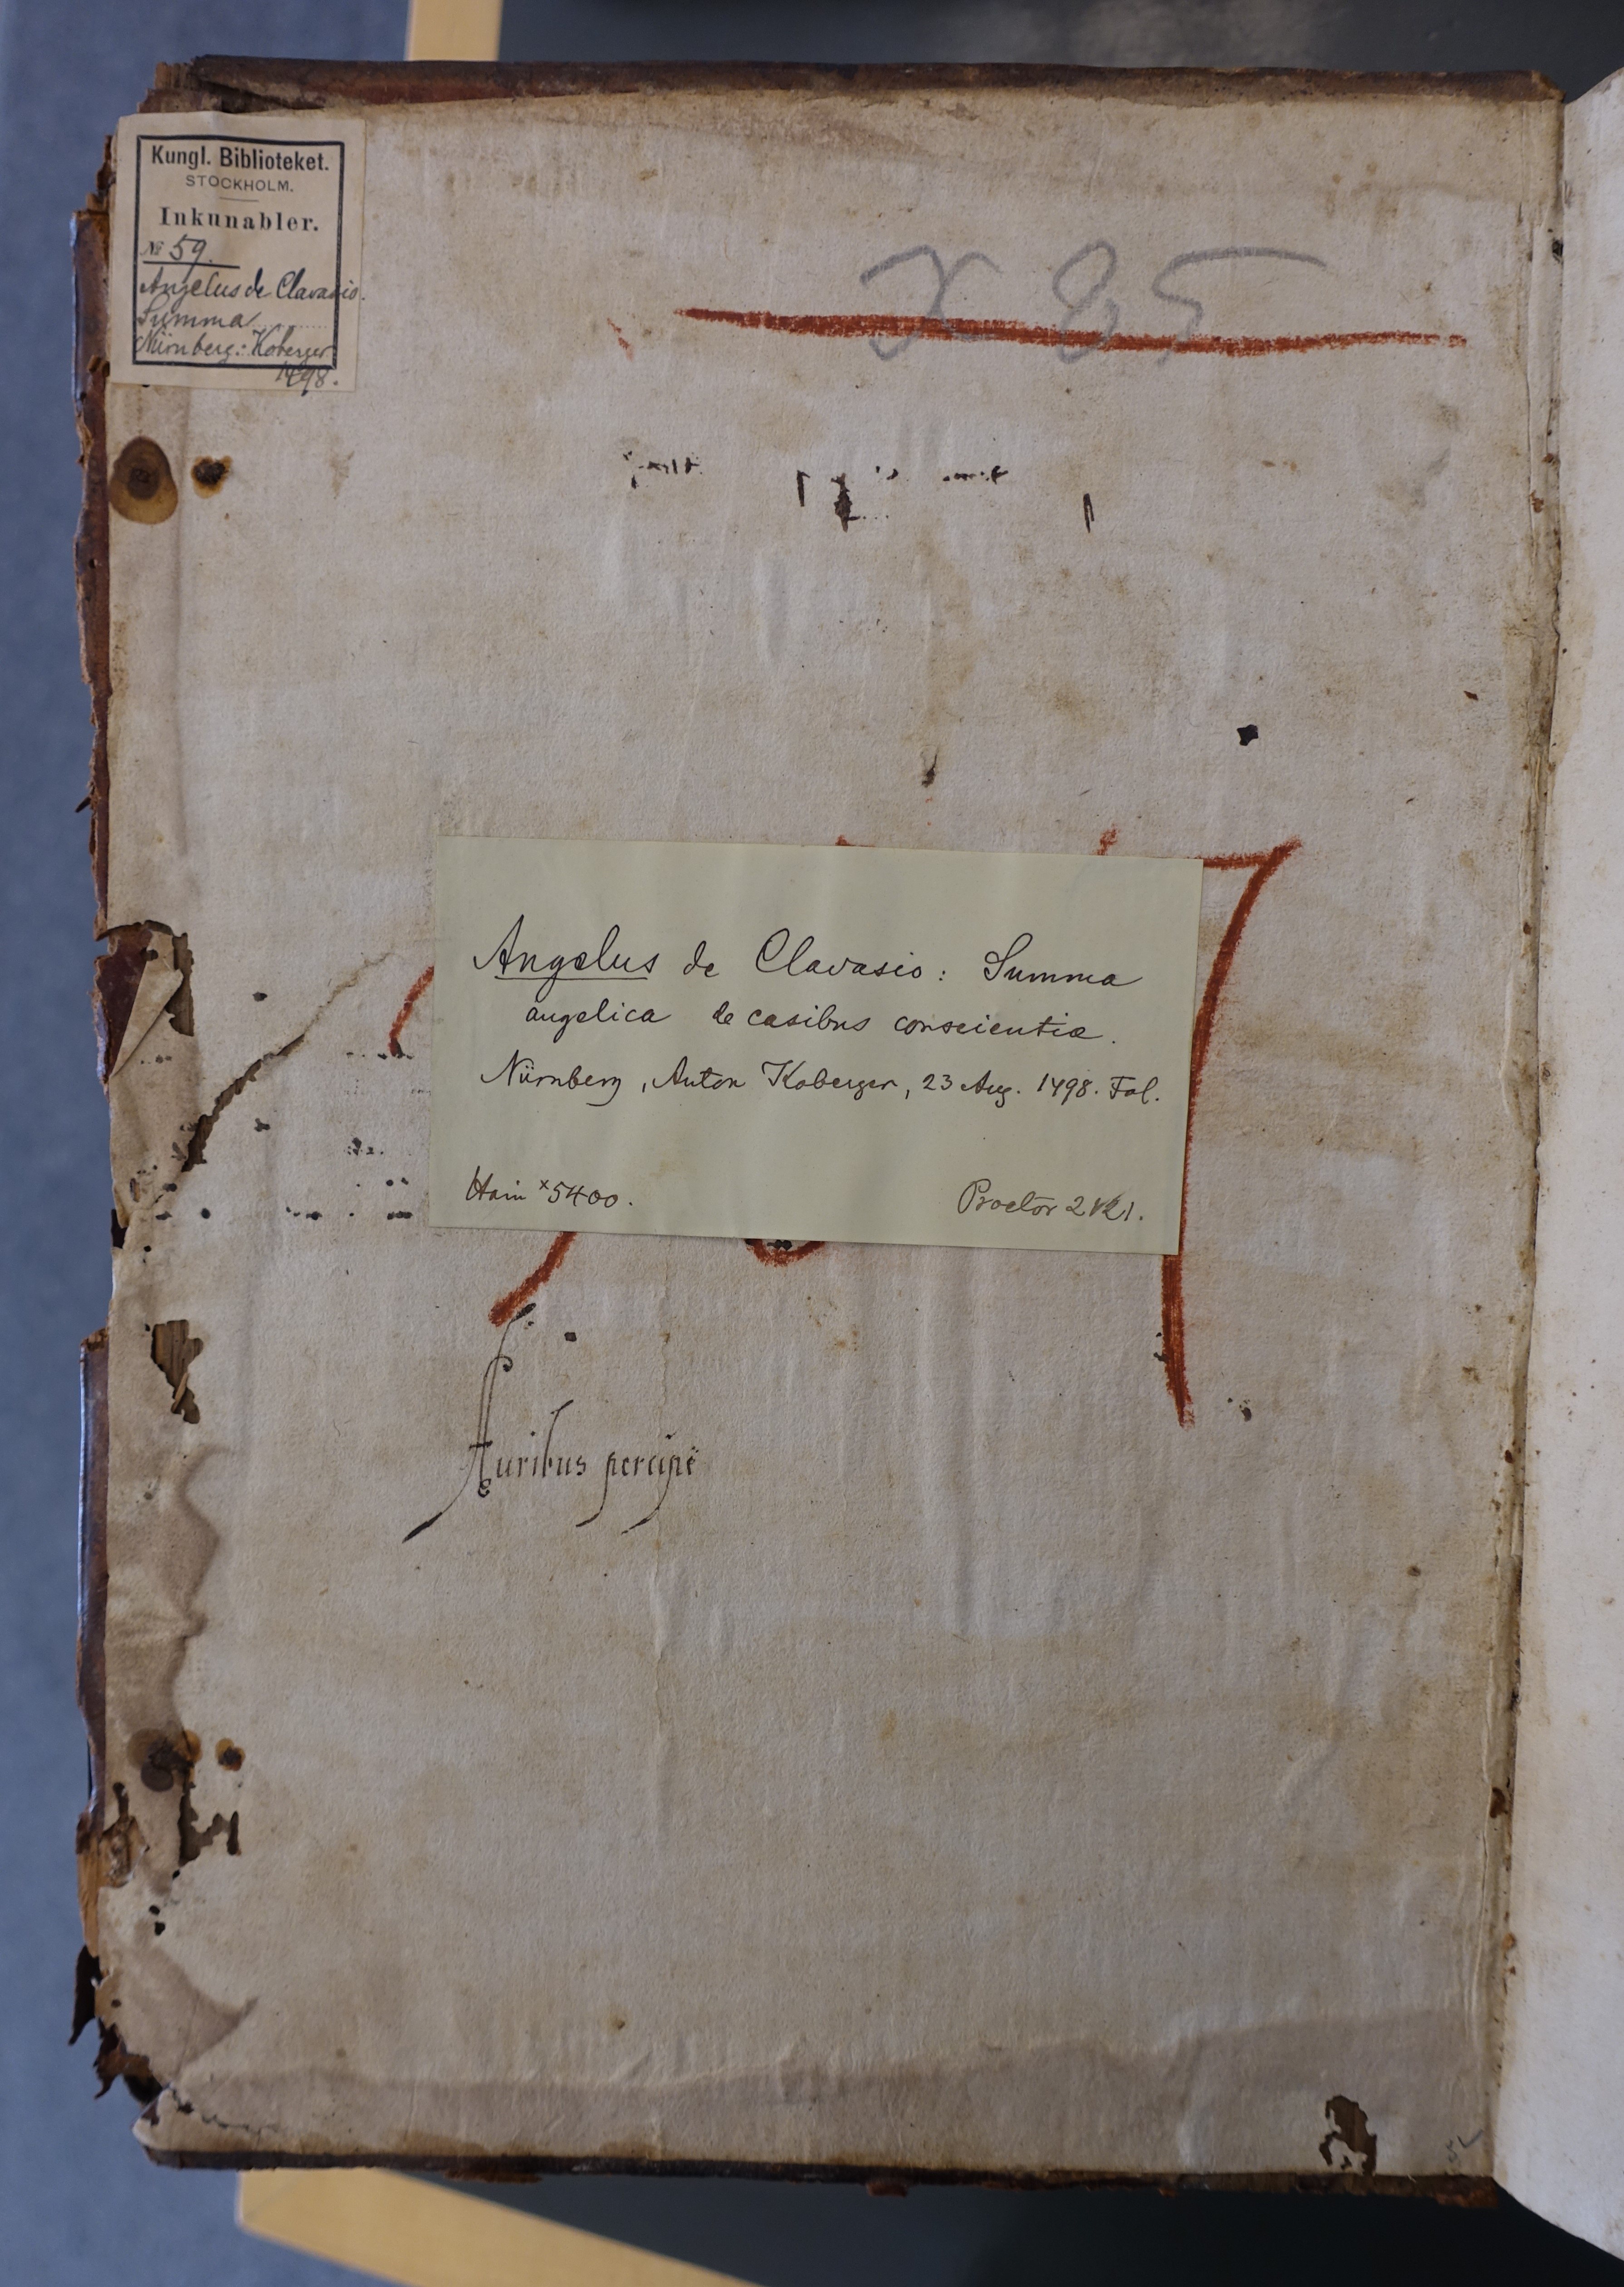 Kungl. Biblioteket.
STOCKHOLM.
Inkunabler.
№ 59.
Angelus de Clavasio.
Summa
Nürnberg: Koberger
1498.
X 85
Angelus de Clavasio: Summa
angelica de casibus conscientiæ.
Nürnberg, Anton Koberger, 23 Aug. 1498. Fol.
Hain ˣ5400.
Proctor 2121.
Auribus percipe